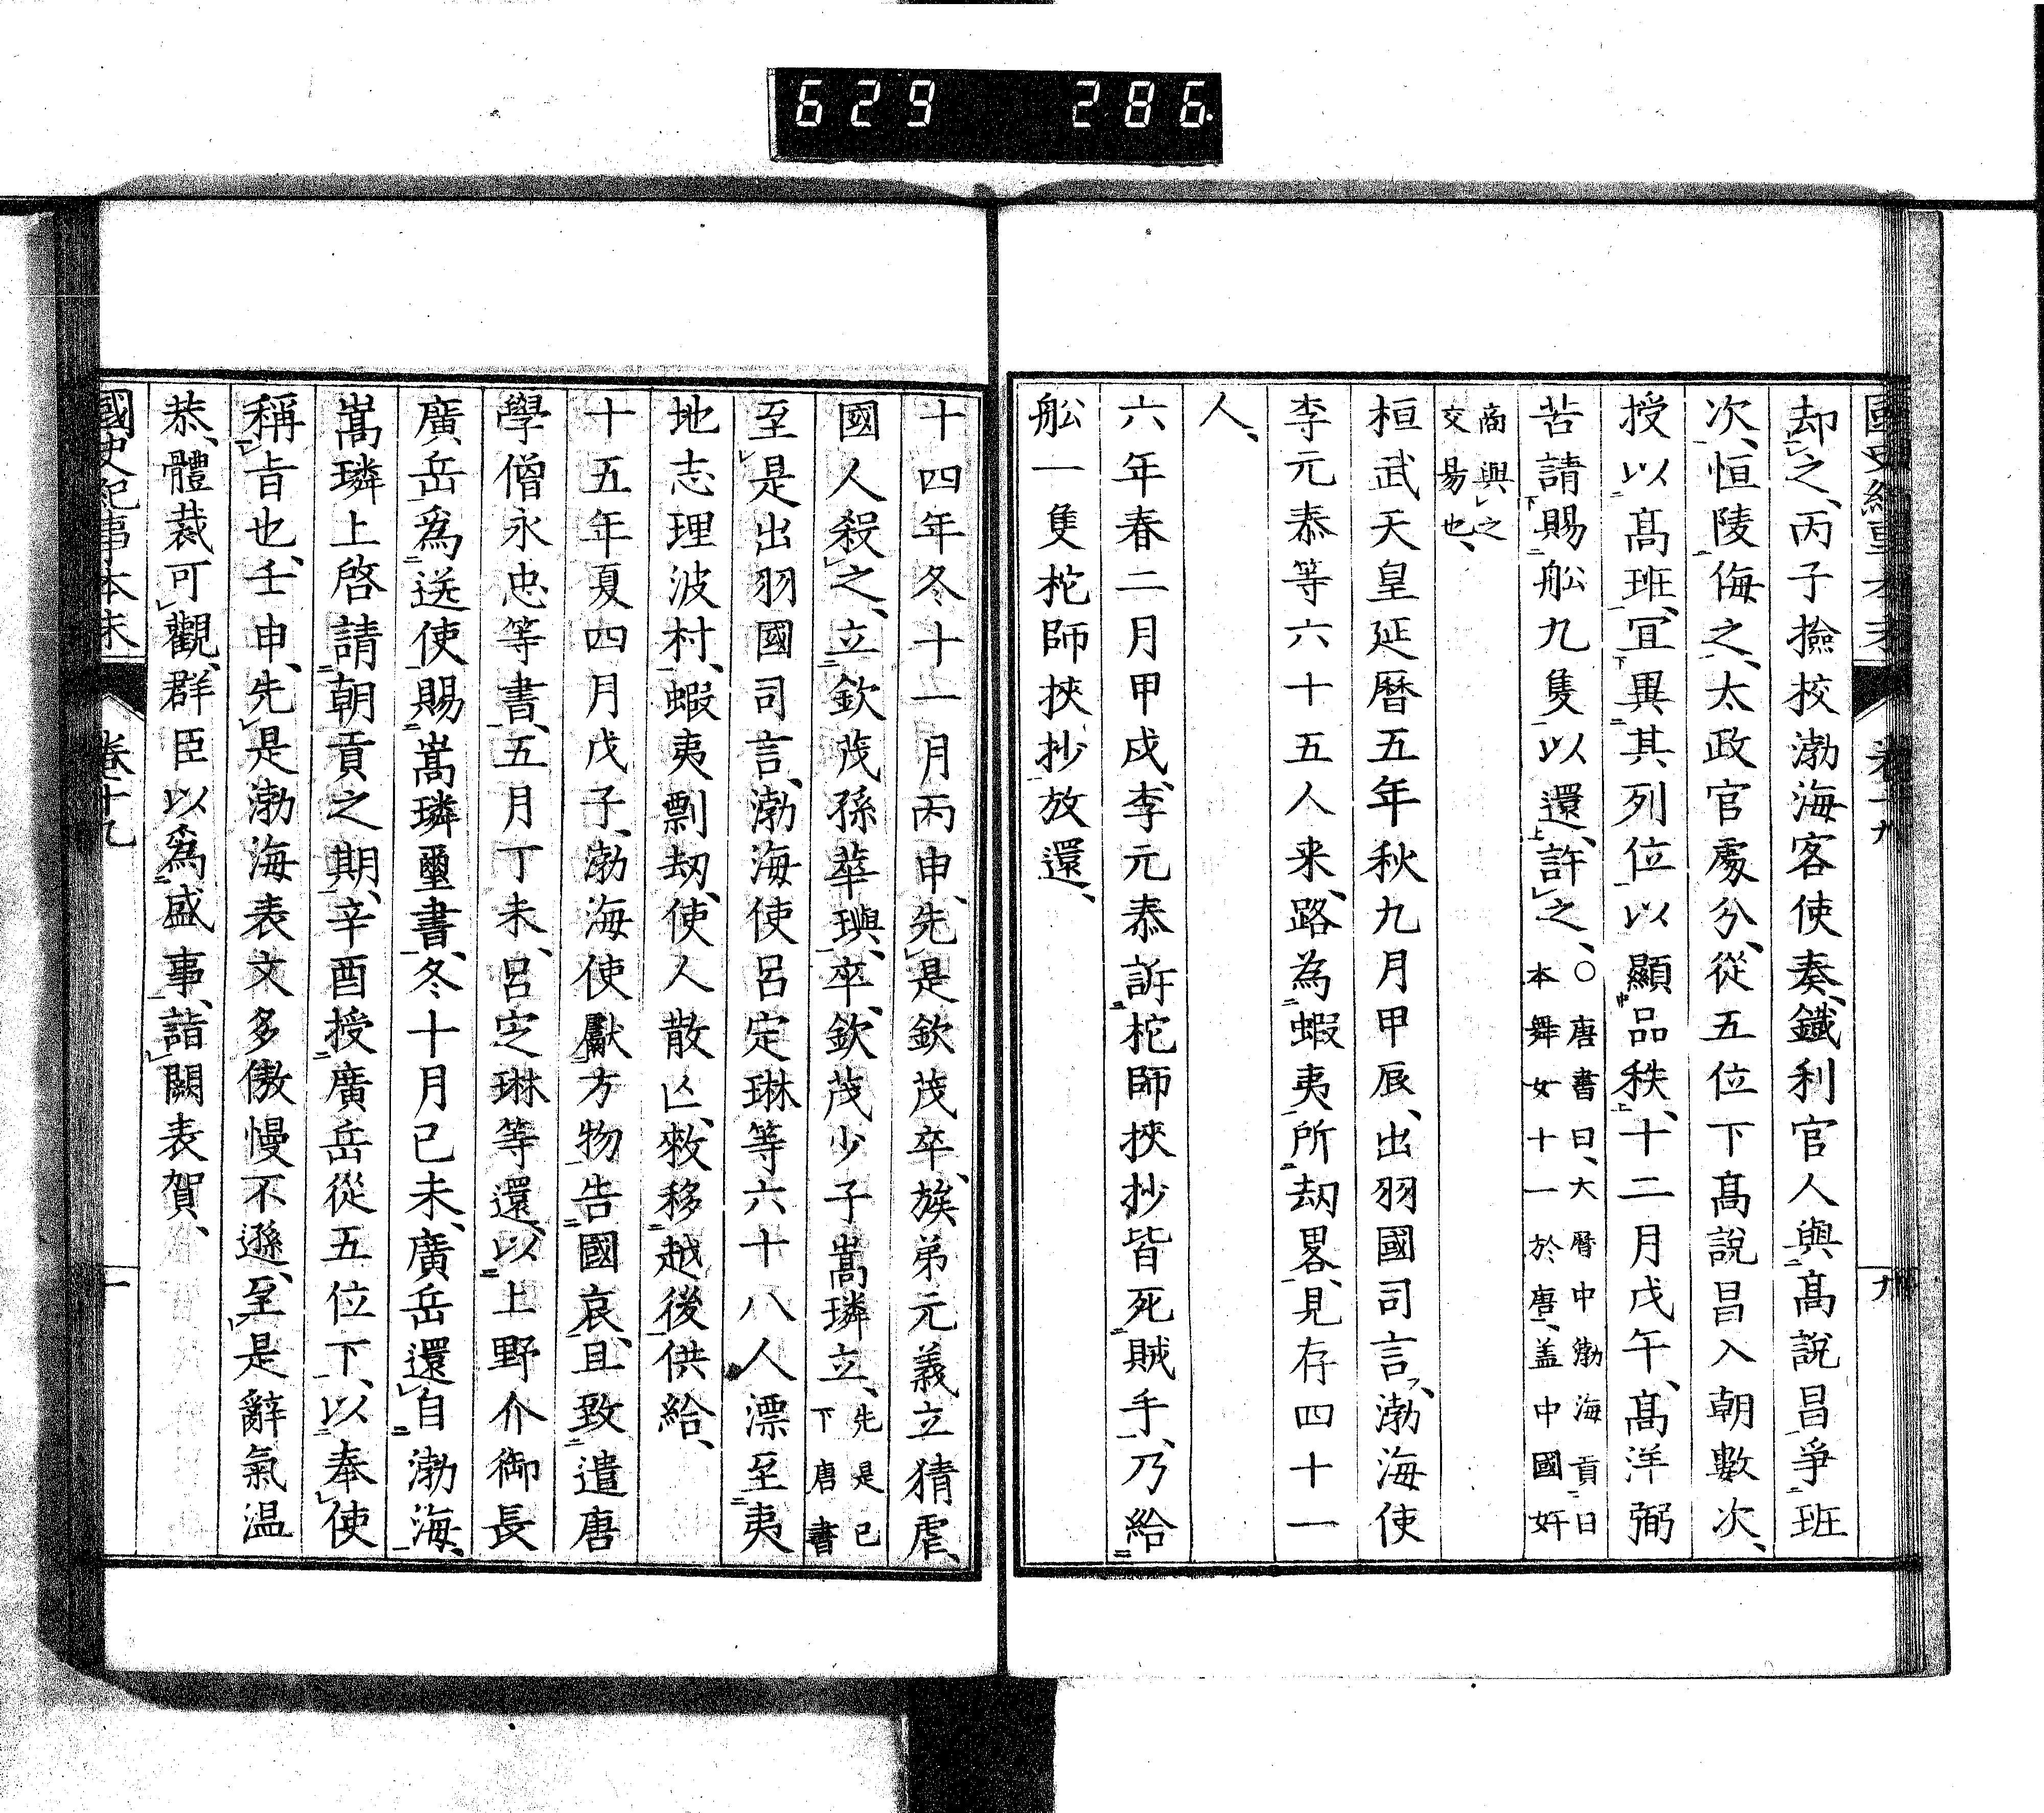 629 286
國史紀事本末 卷十九 九
却之、丙子撿挍渤海客使奏、鐵利官人與高說昌爭班
次、恒陵侮之、太政官處分、從五位下高說昌入朝數次、
授以高班、冝異其列位以顯品秩、十二月戊午、高洋弼
苦請賜舩九隻以還、許之、○唐書曰、大曆中渤海貢日
本舞女十一於唐、盖中國奸
商與之
交易也、
桓武天皇延曆五年秋九月甲辰、出羽國司言、渤海使
李元泰等六十五人来、路為蝦夷所劫畧、見存四十一
人、
六年春二月甲戌、李元泰訴柁師挾抄皆死賊手、乃給
舩一隻柁師挾抄放還、
十四年冬十一月丙申、先是欽茂卒、族弟元義立猜虐、
國人殺之、立欽茂孫華璵、卒、欽茂少子嵩璘立、先是已
下唐書
至是出羽國司言、渤海使呂定琳等六十八人漂至夷
地志理波村、蝦夷剽劫、使人散亾、敕移越後供給、
十五年夏四月戊子、渤海使獻方物告國哀、且致遣唐
學僧永忠等書、五月丁未、呂定琳等還、以上野介御長
廣岳爲送使賜嵩璘璽書、冬十月己未、廣岳還自渤海、
嵩璘上啓請朝貢之期、辛酉授廣岳從五位下、以奉使
稱旨也、壬申、先是渤海表文多傲慢不遜、至是辭氣温
恭、體裁可觀、群臣以爲盛事、詣闕表賀、
國史紀事本末 卷十九 十